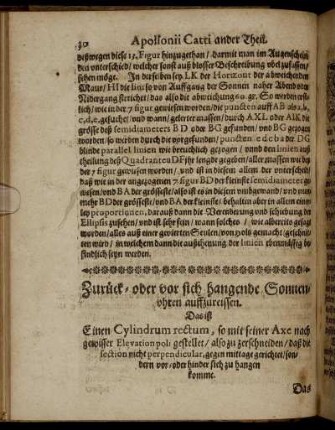 30
Apollonii Catti ander Theil.
deßwegen diese 15. Figur hinzugethan / darmit man im Augenschein
den unterschied / welcher sonst auß blosser Beschreibung übel zufassen /
sehen möge. In dieser sey I.K der Horizont der abweichenden
Maur / HI die lini so von Auffgang der Sonnen naher Abend oder
Nidergang streichet / das also die abweichung
lich / wie in der 7 figur gewiesen worden / die puncten auff AB als a, b,
c, d, e, gesucht / und wann / gelerter massen / durch AXL oder ALK die
grösse deß semidiameters BD oder BG gefunden / und BG gezogen
worden / so werden durch die vorgefunden / puncten DG
blinde parallel linien gezogen / unnd den linien auß
theilung deß Quadranten DF ihr lenge gegeben / aller massen wie bey
der 7 figur gewiesen worden / und ist in diesem allein der unterscheid /
daß wie in der 7 figur BD der kleinste semidiameter ge-
wiesen / und BA der grösseste / also ist es in diesem umbgewand / und nun-
mehr BD der grösseste / und BA der kleinste / behalten aber in allem einer-
ley proportionen, darauß dann die Veränderung und schiebung der
Ellipsis zusehen / und ist sehr fein / wann solches / wie albereit gesagt
worden / alles auß einer gevierten Seulen / von polis gemacht / geschnit-
ten wird / in welchem dann die außtheilung der linien ebenmässig be-
findlich seyn werden.
Zurück- oder vor sich hangende Sonnen-
uhren auffzureissen.
Das ist
Einen Cylindrum rectum, so mit seiner Axe nach
gewisser Elevation poli gestellet / also zu zerschneiden / daß die
section nicht perpendicular, gegen mittage gerichtet / son-
dern vor- oder hinder sich zu hangen
komme.
Das